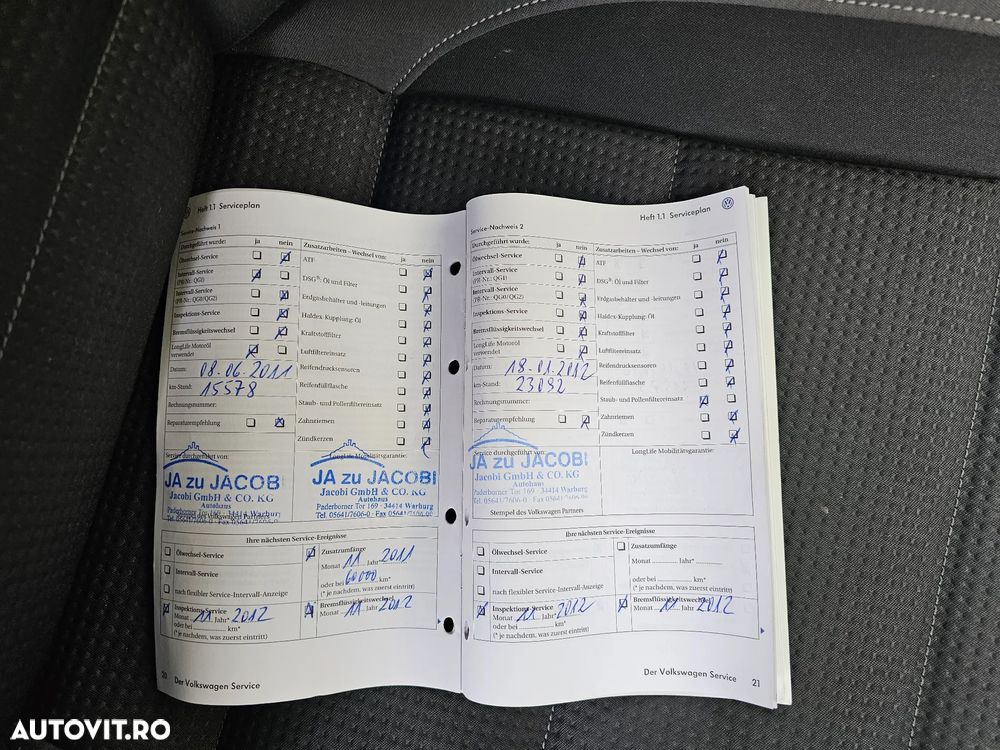 Heft 1.1 Serviceplan
Service-Nachweis 1
Durchgeführt wurde: ja nein
Ölwechsel-Service
Intervall-Service
(PR-Nr.: QG1)
Intervall-Service
(PR-Nr.: QG0/QG2)
Inspektions-Service
Bremsflüssigkeitswechsel
LongLife Motoröl
verwendet
Datum: 08.06.2011
km-Stand: 15578
Rechnungsnummer:
Reparaturempfehlung
Service durchgeführt von:
JA zu JACOBI
Jacobi GmbH & CO. KG
Autohaus
Paderborner Tor 169 - 34414 Warburg
Tel. 05641/7606-0 - Fax 05641/7606-
Stempel des Volkswagen Partners
Zusatzarbeiten – Wechsel von: ja nein
ATF
DSG®: Öl und Filter
Erdgasbehälter und -leitungen
Haldex-Kupplung: Öl
Kraftstofffilter
Luftfiltereinsatz
Reifendrucksensoren
Reifenfüllflasche
Staub- und Pollenfiltereinsatz
Zahnriemen
Zündkerzen
LongLife Mobilitätsgarantie:
JA zu JACOBI
Jacobi GmbH & CO. KG
Autohaus
Paderborner Tor 169 - 34414 Warburg
Tel. 05641/7606-0 - Fax 05641/7606-99
Ihre nächsten Service-Ereignisse
Ölwechsel-Service
Intervall-Service
nach flexibler Service-Intervall-Anzeige
Inspektions-Service
Monat 11 Jahr* 2012
oder bei km*
(* je nachdem, was zuerst eintritt)
Zusatzumfänge
Monat 11 Jahr* 2011
oder bei 60000 km*
(* je nachdem, was zuerst eintritt)
Bremsflüssigkeitswechsel
Monat 11 Jahr 2012
20 Der Volkswagen Service
Heft 1.1 Serviceplan
Service-Nachweis 2
Durchgeführt wurde: ja nein
Ölwechsel-Service
Intervall-Service
(PR-Nr.: QG1)
Intervall-Service
(PR-Nr.: QG0/QG2)
Inspektions-Service
Bremsflüssigkeitswechsel
LongLife Motoröl
verwendet
Datum: 18.01.2012
km-Stand: 23092
Rechnungsnummer:
Reparaturempfehlung
Service durchgeführt von:
JA zu JACOBI
Jacobi GmbH & CO. KG
Autohaus
Paderborner Tor 169 - 34414 Warburg
Tel. 05641/7606-0 - Fax 05641/7606-99
Stempel des Volkswagen Partners
Zusatzarbeiten – Wechsel von: ja nein
ATF
DSG®: Öl und Filter
Erdgasbehälter und -leitungen
Haldex-Kupplung: Öl
Kraftstofffilter
Luftfiltereinsatz
Reifendrucksensoren
Reifenfüllflasche
Staub- und Pollenfiltereinsatz
Zahnriemen
Zündkerzen
LongLife Mobilitätsgarantie:
Ihre nächsten Service-Ereignisse
Ölwechsel-Service
Intervall-Service
nach flexibler Service-Intervall-Anzeige
Inspektions-Service
Monat 11 Jahr* 2012
oder bei km*
(* je nachdem, was zuerst eintritt)
Zusatzumfänge
Monat Jahr*
oder bei km*
(* je nachdem, was zuerst eintritt)
Bremsflüssigkeitswechsel
Monat 11 Jahr 2012
Der Volkswagen Service 21
AUTOVIT.RO